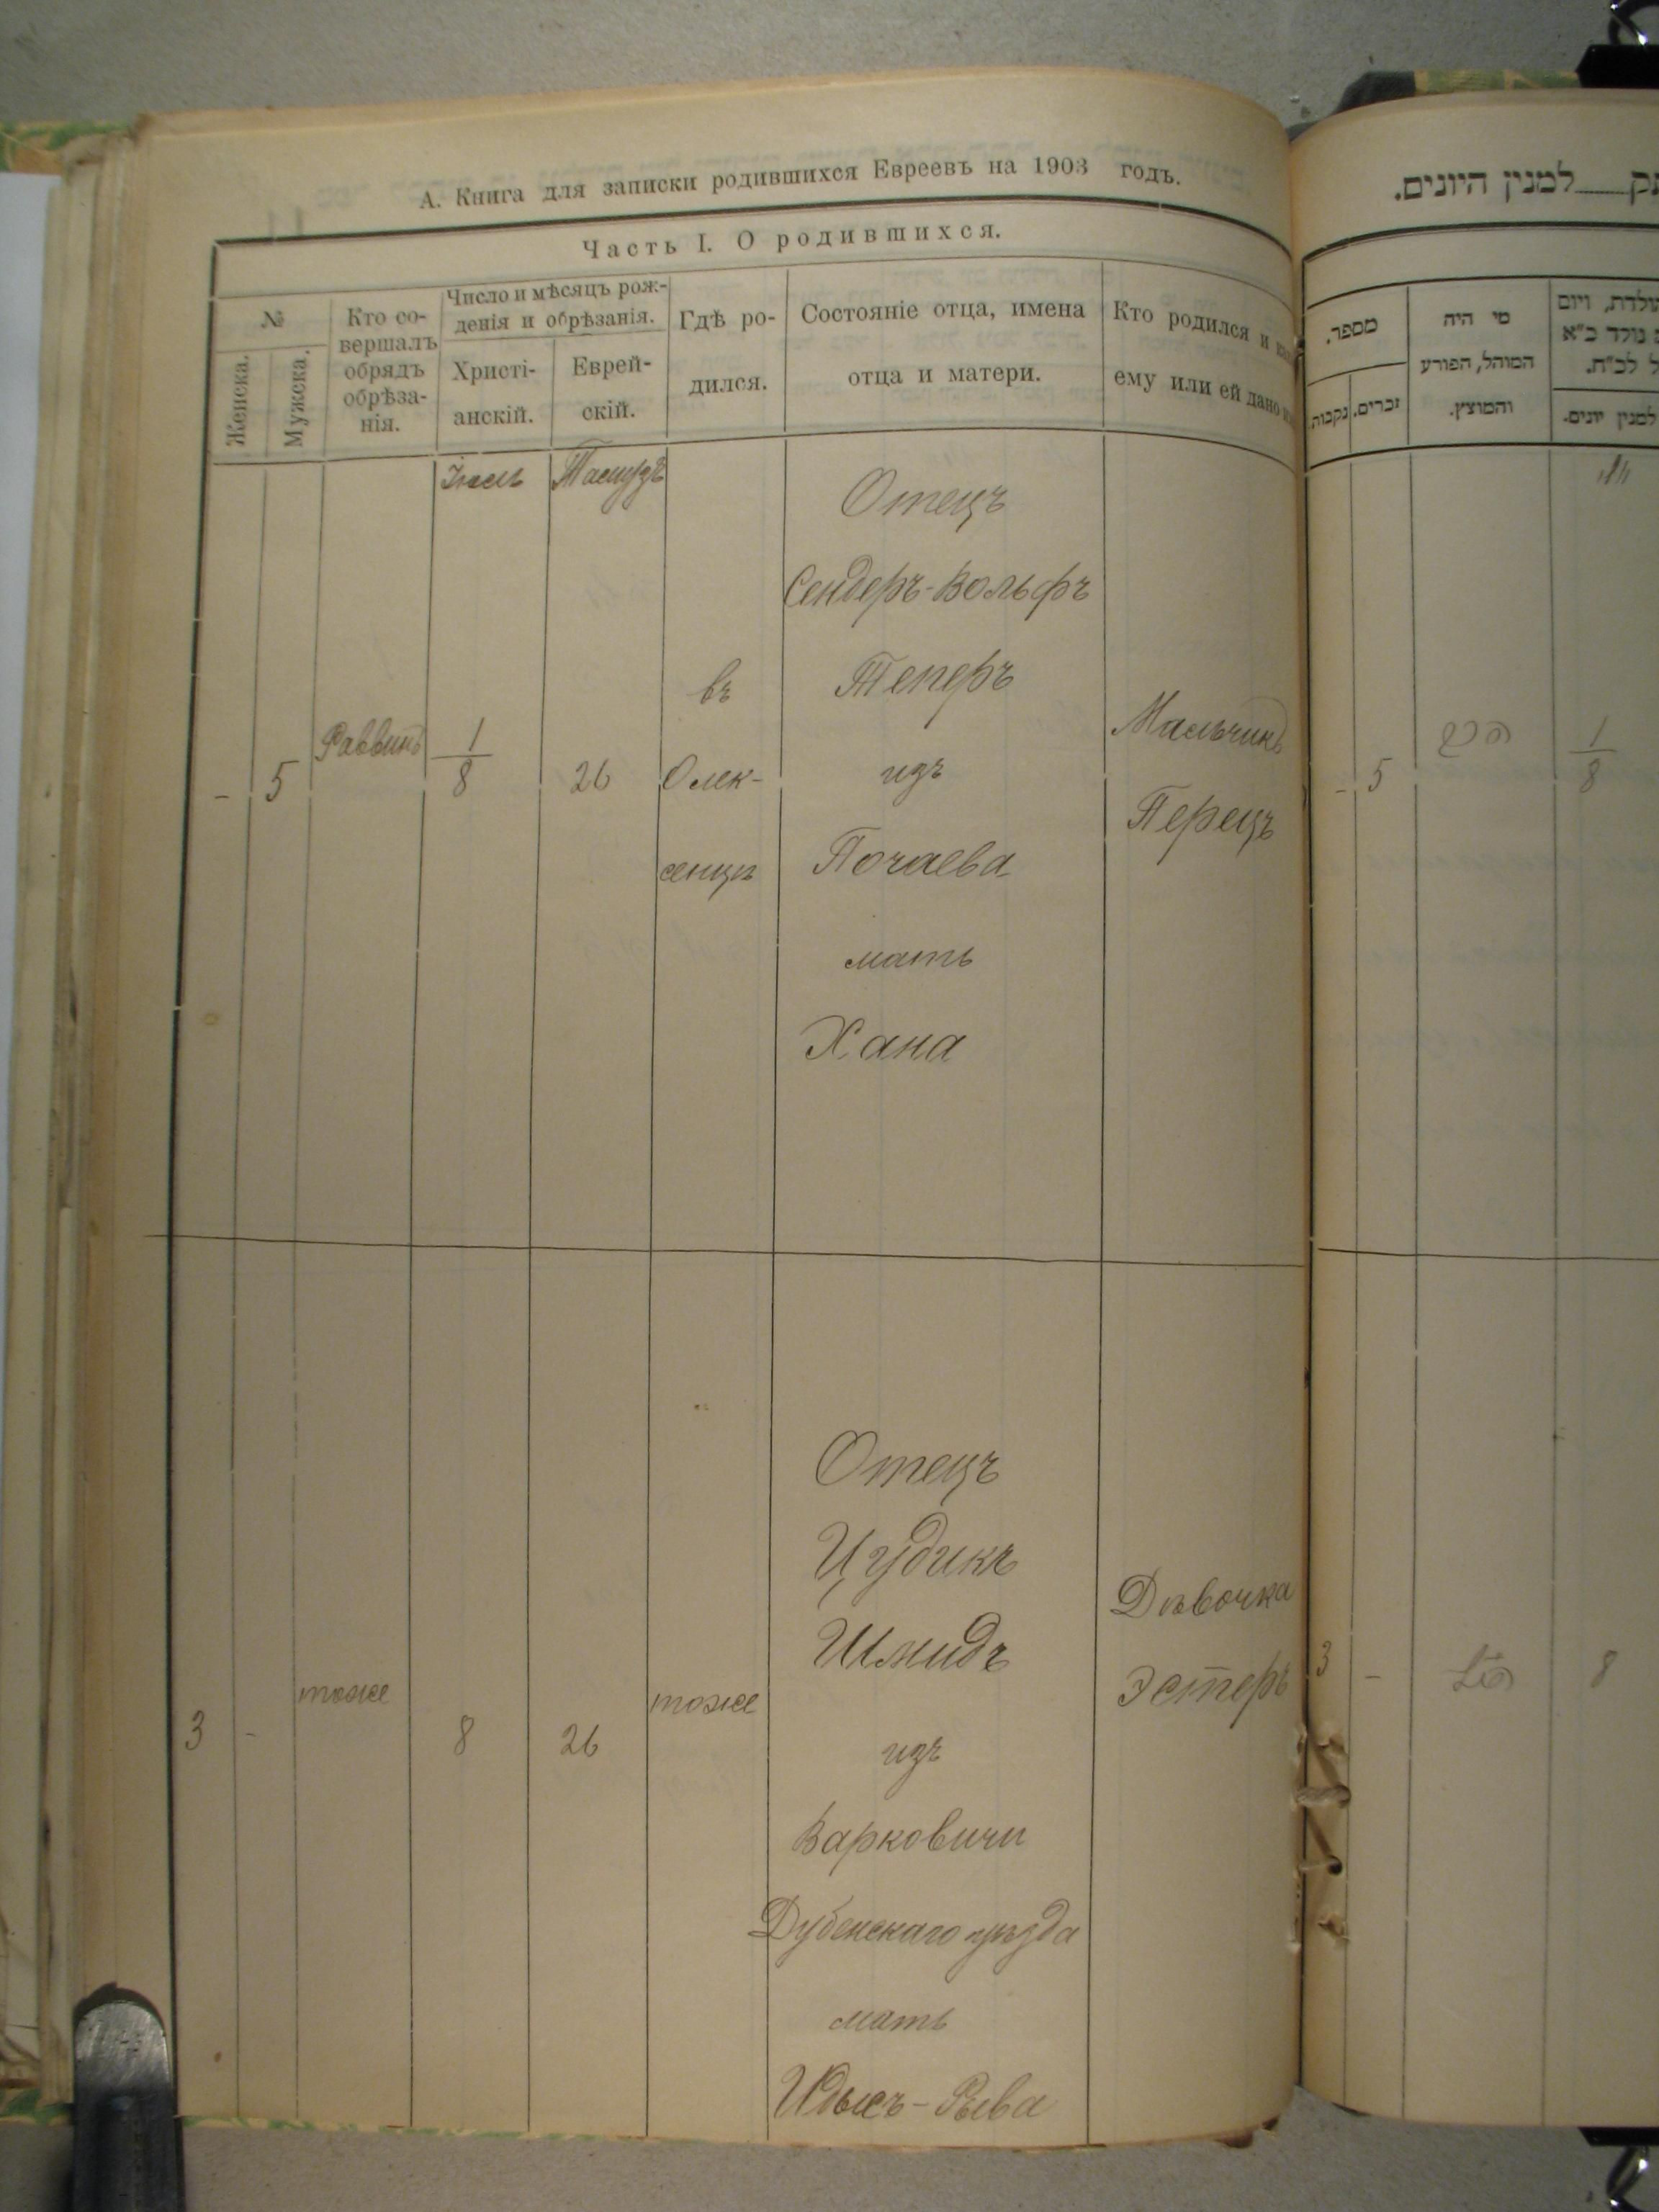 А. Книга для записки родившихся Евреевъ на 1903 годъ.
Часть I. О родившихся.
№
Женска.
Мужска.
Кто со-
вершалъ
обрядъ
обрѣза-
нія.
Число и мѣсяцъ рож-
денія и обрѣзанія.
Христі-
анскій.
Еврей-
скій.
Гдѣ ро-
дился.
Состояніе отца, имена
отца и матери.
Кто родился и
ему или ей дано
Іюль
Тамузъ
-
5
Раввинъ
1
8
26
въ
Олек-
сенцѣ
Отецъ
Сендеръ-Вольфъ
Теперъ
изъ
Почаева
мать
Хана
Мальчикъ
Перецъ
3
-
тоже
8
26
тоже
Отецъ
Цудикъ
Шмидъ
изъ
Варковичи
Дубенскаго уѣзда
мать
Дѣвочка
Эстеръ
למנין היונים.
מספר.
זכרים.
נקבות.
מי היה
המוהל, הפורע
והמוצץ.
ויום
נולד בי״א
למנין יונים.
-
5
הרב
1
8
3
-
8